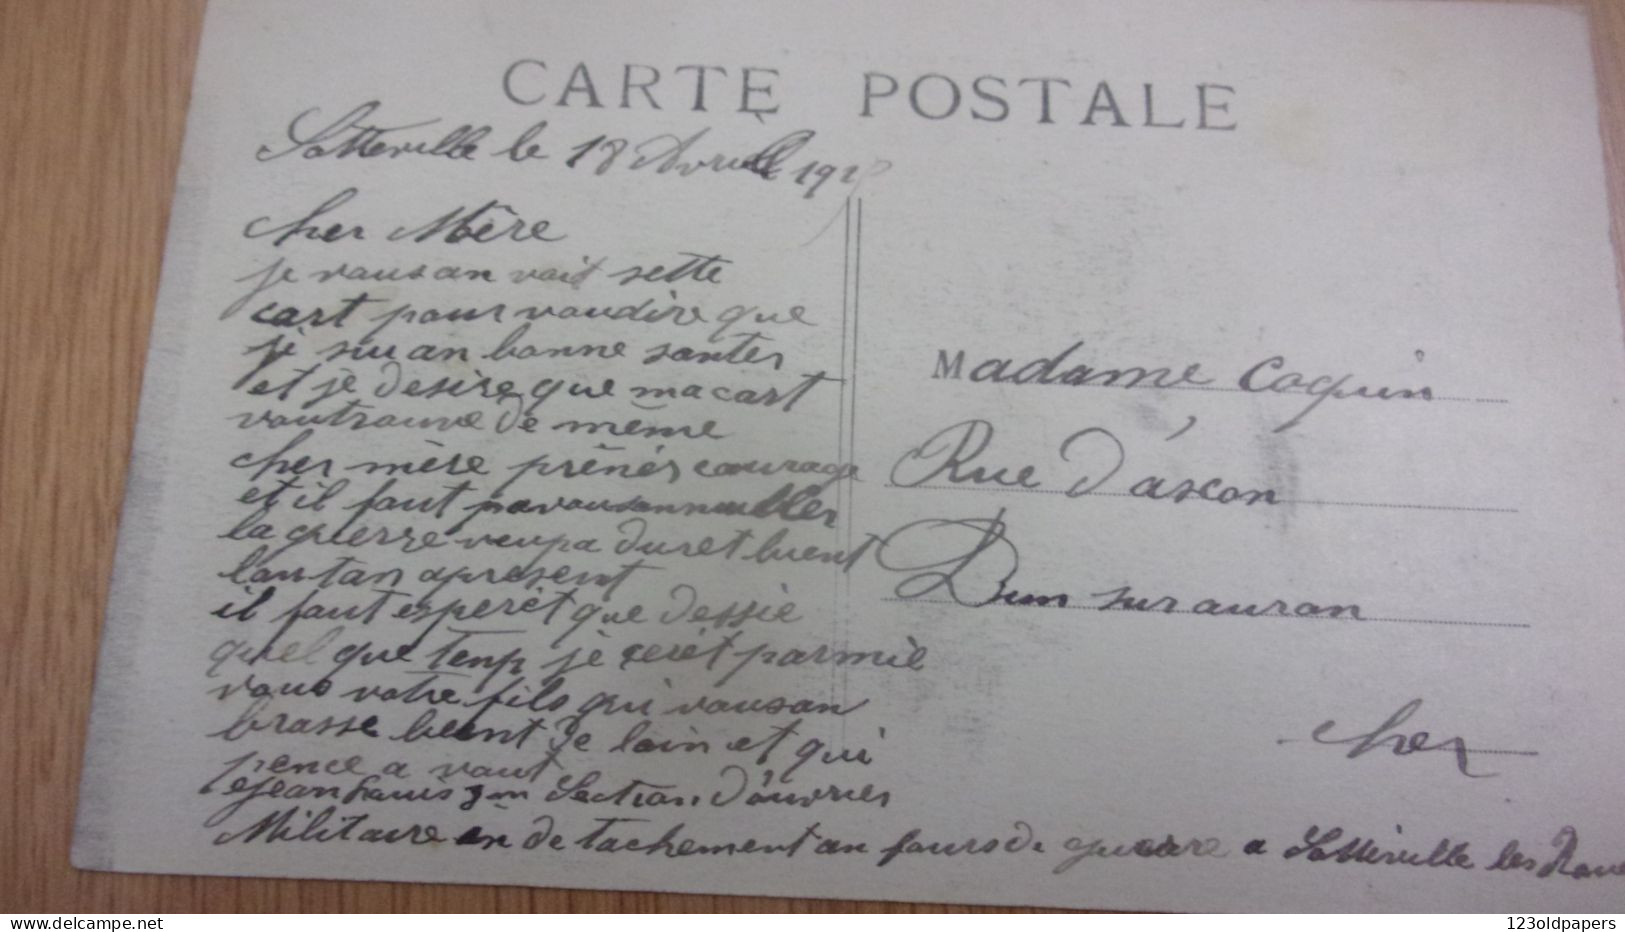 CARTE POSTALE
Sotteville le 18 Avrill 191
cher Mère
je vousan vait sette
cart pour voudire que
je sui an bonne santer
et je desire que ma cart
voutrouve de même
cher mère prênér courage
et il faut pavousannuiller
la guerre veupa duret buent
lontan apresent
il faut esperét que dessie
quel que temp je serét parmie
vous votre fils qui vousan
brasse beint de loin et qui
pence a vout
Jean Louis 3 em Section D'ouvrier
Militaire en de tachement au fours de guerre a Sotteville les Roue
Madame Coquin
Rue D'ascon
Dun sur auron
cher
123oldpapers